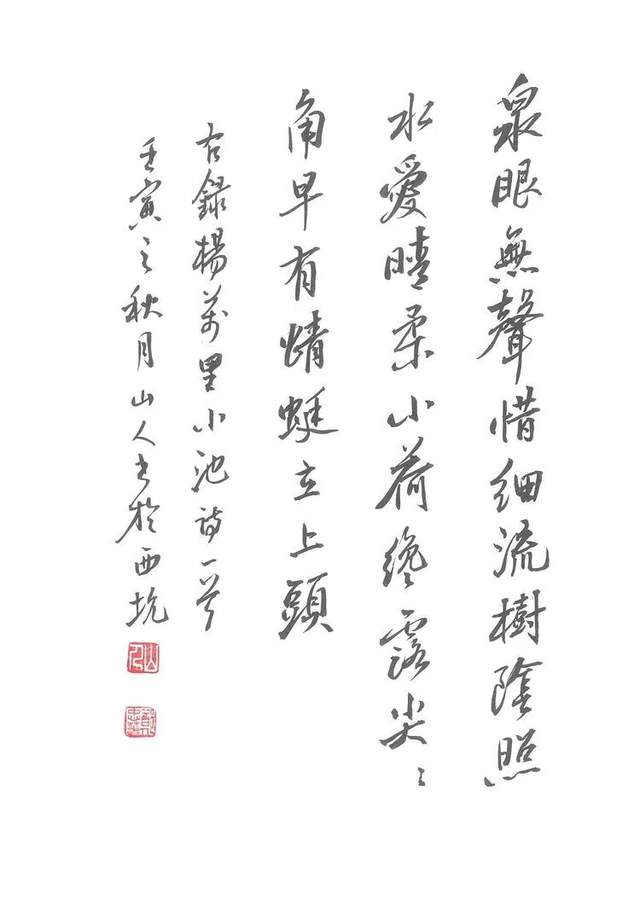 泉眼無聲惜細流樹陰照
水愛晴柔小荷纔露尖〻
角早有蜻蜓立上頭
右録楊萬里小池詩一首
壬寅之秋月山人书於西坑
山人